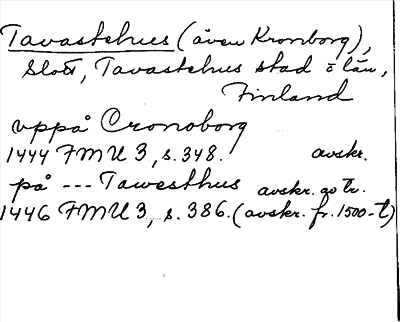 Tavastehus (även Kronborg),
slott, Tavastehus stad o län,
Finland
uppå Cronoborg
1444 FMU 3, s. 348. avskr.
på --- Tawesthus avskr. o tr.
1446 FMU 3, s. 386. (avskr. fr. 1500-t)